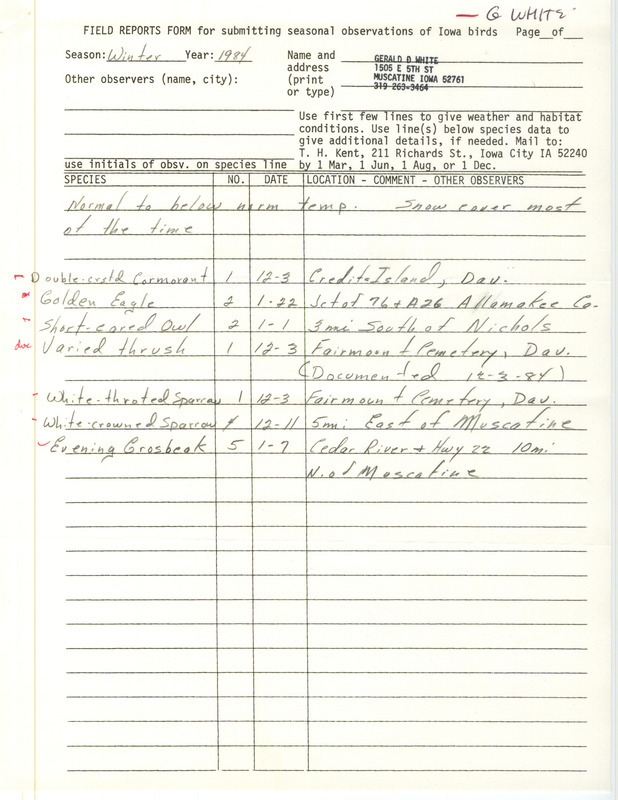 — G WHITE
FIELD REPORTS FORM for submitting seasonal observations of Iowa birds Page__of__
Season: Winter Year: 1984
Name and address (print or type)
GERALD D WHITE
1505 E 5TH ST
MUSCATINE IOWA 52761
319 263-3464
Other observers (name, city):
Use first few lines to give weather and habitat
conditions. Use line(s) below species data to
give additional details, if needed. Mail to:
T. H. Kent, 211 Richards St., Iowa City IA 52240
by 1 Mar, 1 Jun, 1 Aug, or 1 Dec.
use initials of obsv. on species line
SPECIES NO. DATE LOCATION - COMMENT - OTHER OBSERVERS
Normal to below norm temp. Snow cover most
of the time
Double-crstd Cormorant 1 12-3 Credit Island, Dav.
Golden Eagle 2 1-22 Jct of 76 + A26 Allamakee Co.
Short-eared Owl 2 1-1 3mi South of Nichols
doc Varied thrush 1 12-3 Fairmount Cemetery, Dav.
(Documented 12-3-84)
White-throted Sparrow 1 12-3 Fairmount Cemetery, Dav.
White-crowned Sparrow 12-11 5mi East of Muscatine
Evening Grosbeak 5 1-7 Cedar River + Hwy 22 10mi
N. of Muscatine